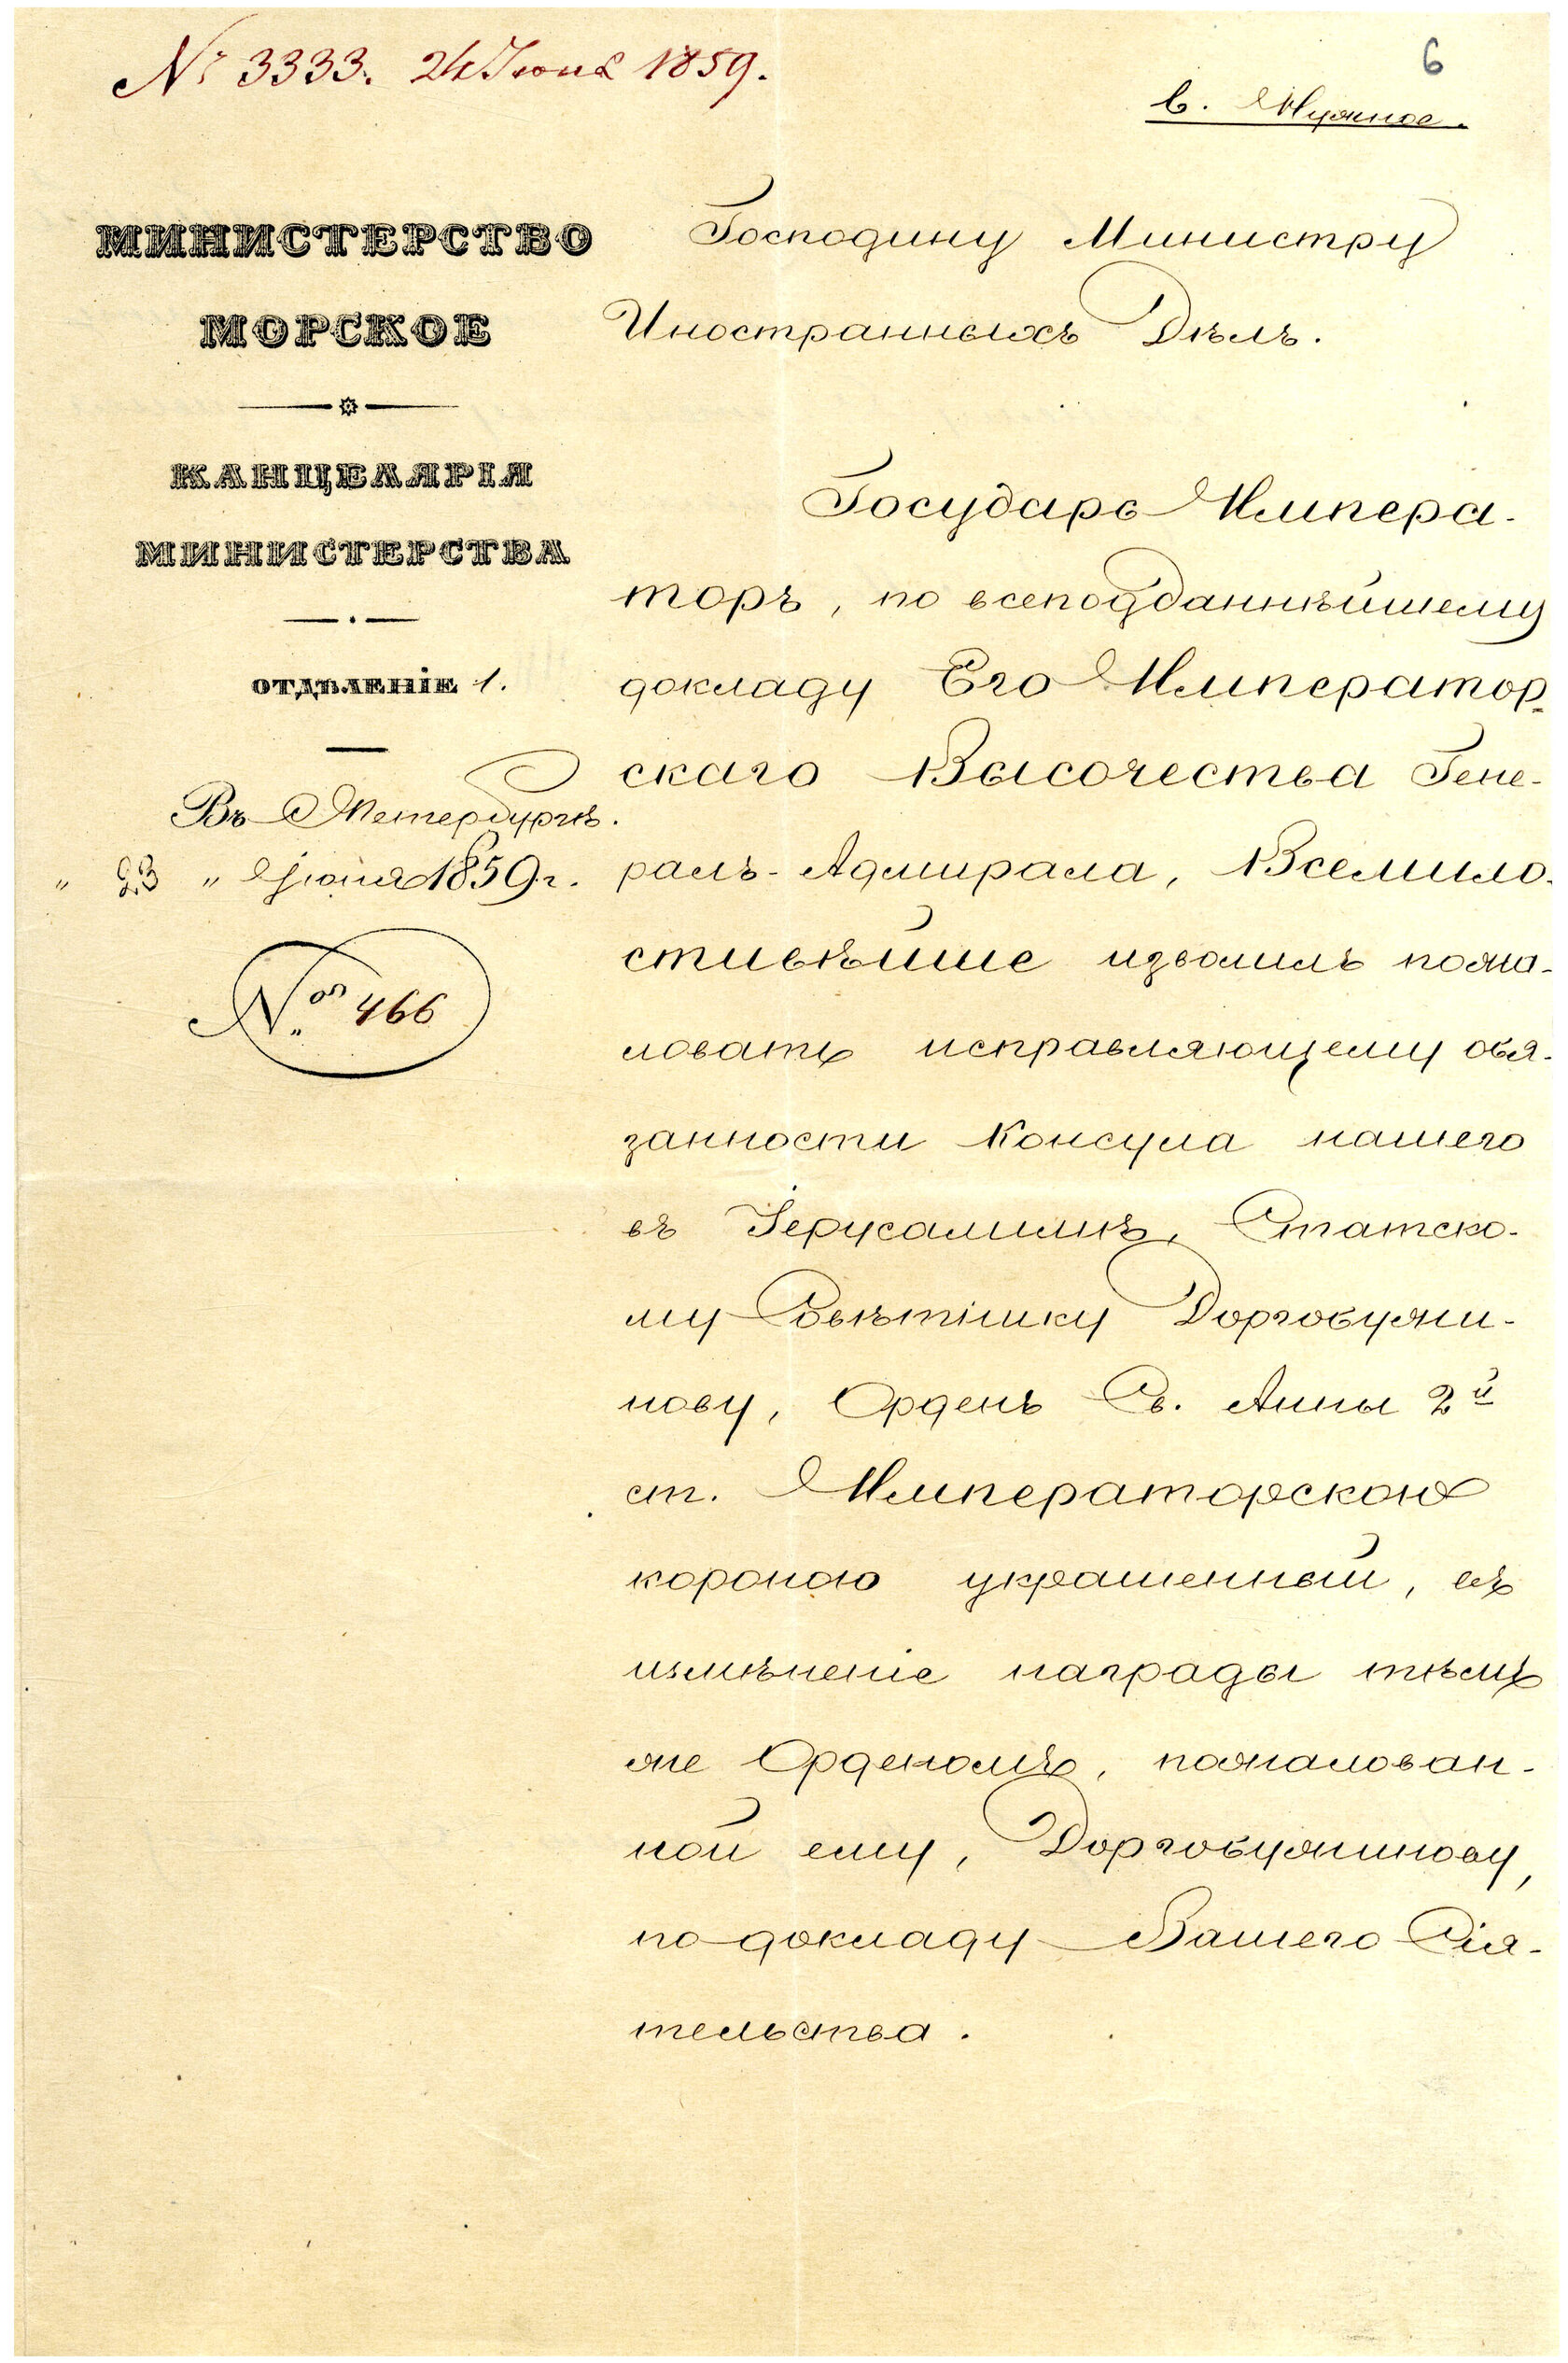 № 3333. 24 Іюня 1859.
6
в. Нужное.
МИНИСТЕРСТВО
МОРСКОЕ
КАНЦЕЛЯРІЯ
МИНИСТЕРСТВА
ОТДѢЛЕНІЕ 1.
Въ С Петербургѣ.
" 23 " Іюня 1859 г.
№ 466
Господину Министру
Иностранныхъ Дѣлъ.
Государь Импера-
торъ, по всеподданнѣйшему
докладу Его Император-
скаго Высочества Гене-
ралъ-Адмирала, Всемило-
стивѣйше изволилъ пожа-
ловать исправляющему обя-
занности Консула нашего
въ Іерусалимѣ, Статско-
му Совѣтнику Доргобужи-
нову, Орденъ Св. Анны 2й
ст. Императорскою
короною украшенный, въ
измѣненіе награды тѣмъ
же Орденомъ, пожалован-
ной ему, Доргобужинову,
по докладу Вашего Сія-
тельства.